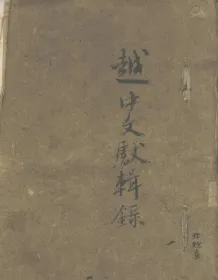 越中文獻輯錄